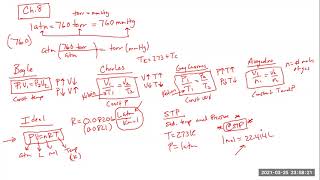 Ch. 8
torr = mmHg
1 atm = 760 torr = 760 mmHg
(760) atm (760 torr / atm) = torr (mmHg)
TK = 273 + Tc
Boyle
P1V1 = P2V2
P↑ V↓
P↓ V↑
Const temp
Charles
V1/T1 = V2/T2
V↑ T↑
V↓ T↓
Const P
Gay Lussac
P1/T1 = P2/T2
P↑ T↑
P↓ T↓
Const V
V1/n1 = V2/n2
Constant T and P
Ideal
PV = nRT
atm L mol Temp (K)
R = 0.08206 L atm / K mol
(0.0821)
STP
Std. temp and Pressure
T = 273K
P = 1 atm
* @ STP *
1 mol = 22.414 L
2021-03-25 23:58:21